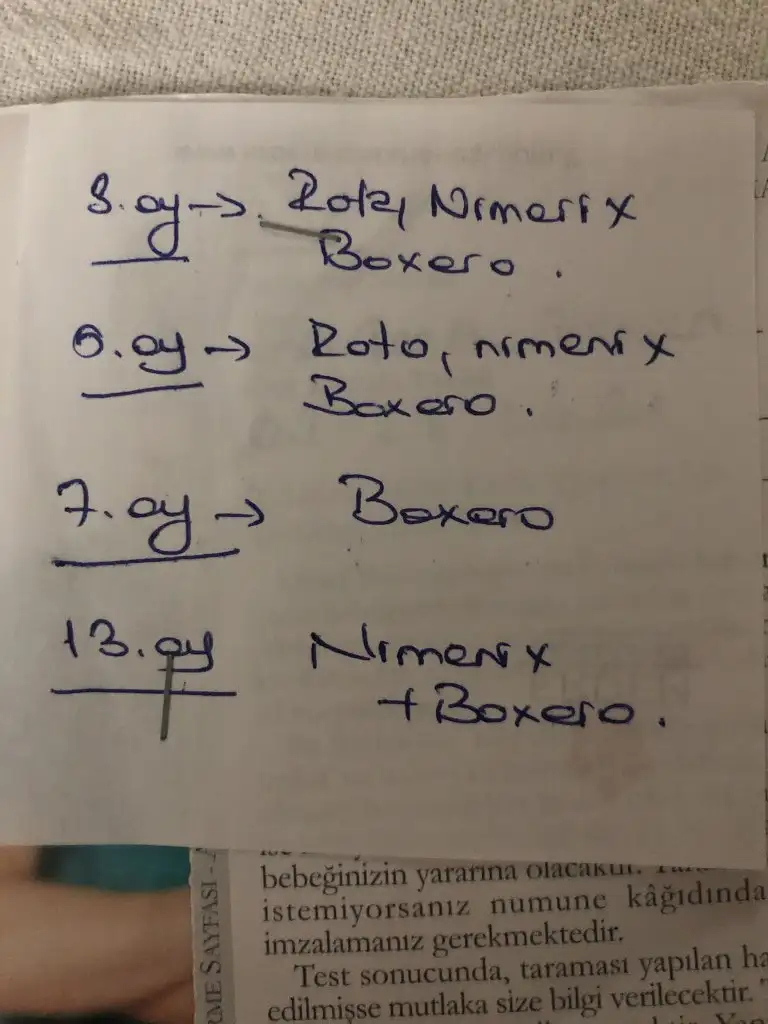 3.ay → Rota, Nimenix
Boxero.
6.ay → Rota, nimenix
Boxero.
7.ay → Boxero
13.ay Nimenix
+Boxero.
bebeğinizin yararına olacaktır.
istemiyorsanız numune kâğıdında
imzalamanız gerekmektedir.
Test sonucunda, taraması yapılan ha
edilmişse mutlaka size bilgi verilecektir.
RME SAYFASI - A